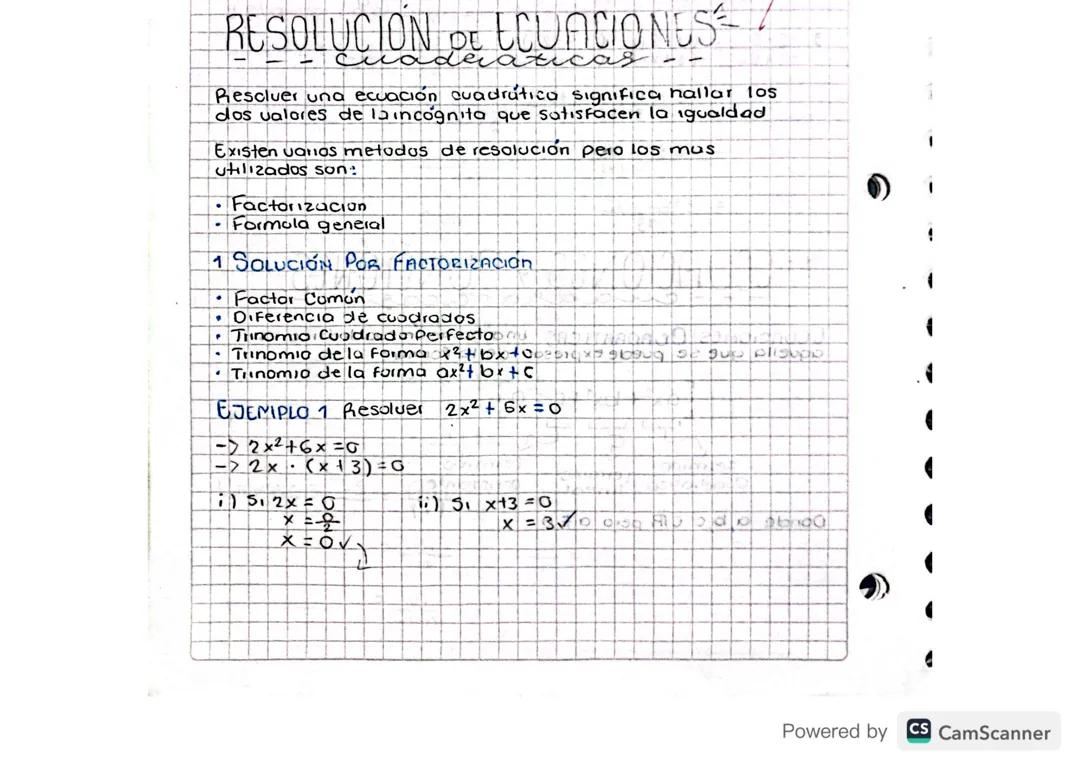 RESOLUCIÓN DE ECUACIONES
cuadráticas
Resolver una ecuación cuadrática significa hallar los
dos valores de la incógnita que satisfacen la igualdad
Existen varios metodos de resolución pero los mas
utilizados son:
• Factorizacion
• Formula general
1 SOLUCIÓN POR FACTORIZACIÓN
• Factor Común
• Diferencia de cuadrados
• Trinomio Cuadrado Perfecto
• Trinomio de la forma x² + bx + c
• Trinomio de la forma ax² + bx + c
EJEMPLO 1 Resolver 2x² + 6x = 0
-> 2x² + 6x = 0
-> 2x · (x + 3) = 0
i) Si 2x = 0
x = 0/2
x = 0 ✓
ii) Si x+3 = 0
x = 3 ✓
Powered by CS CamScanner